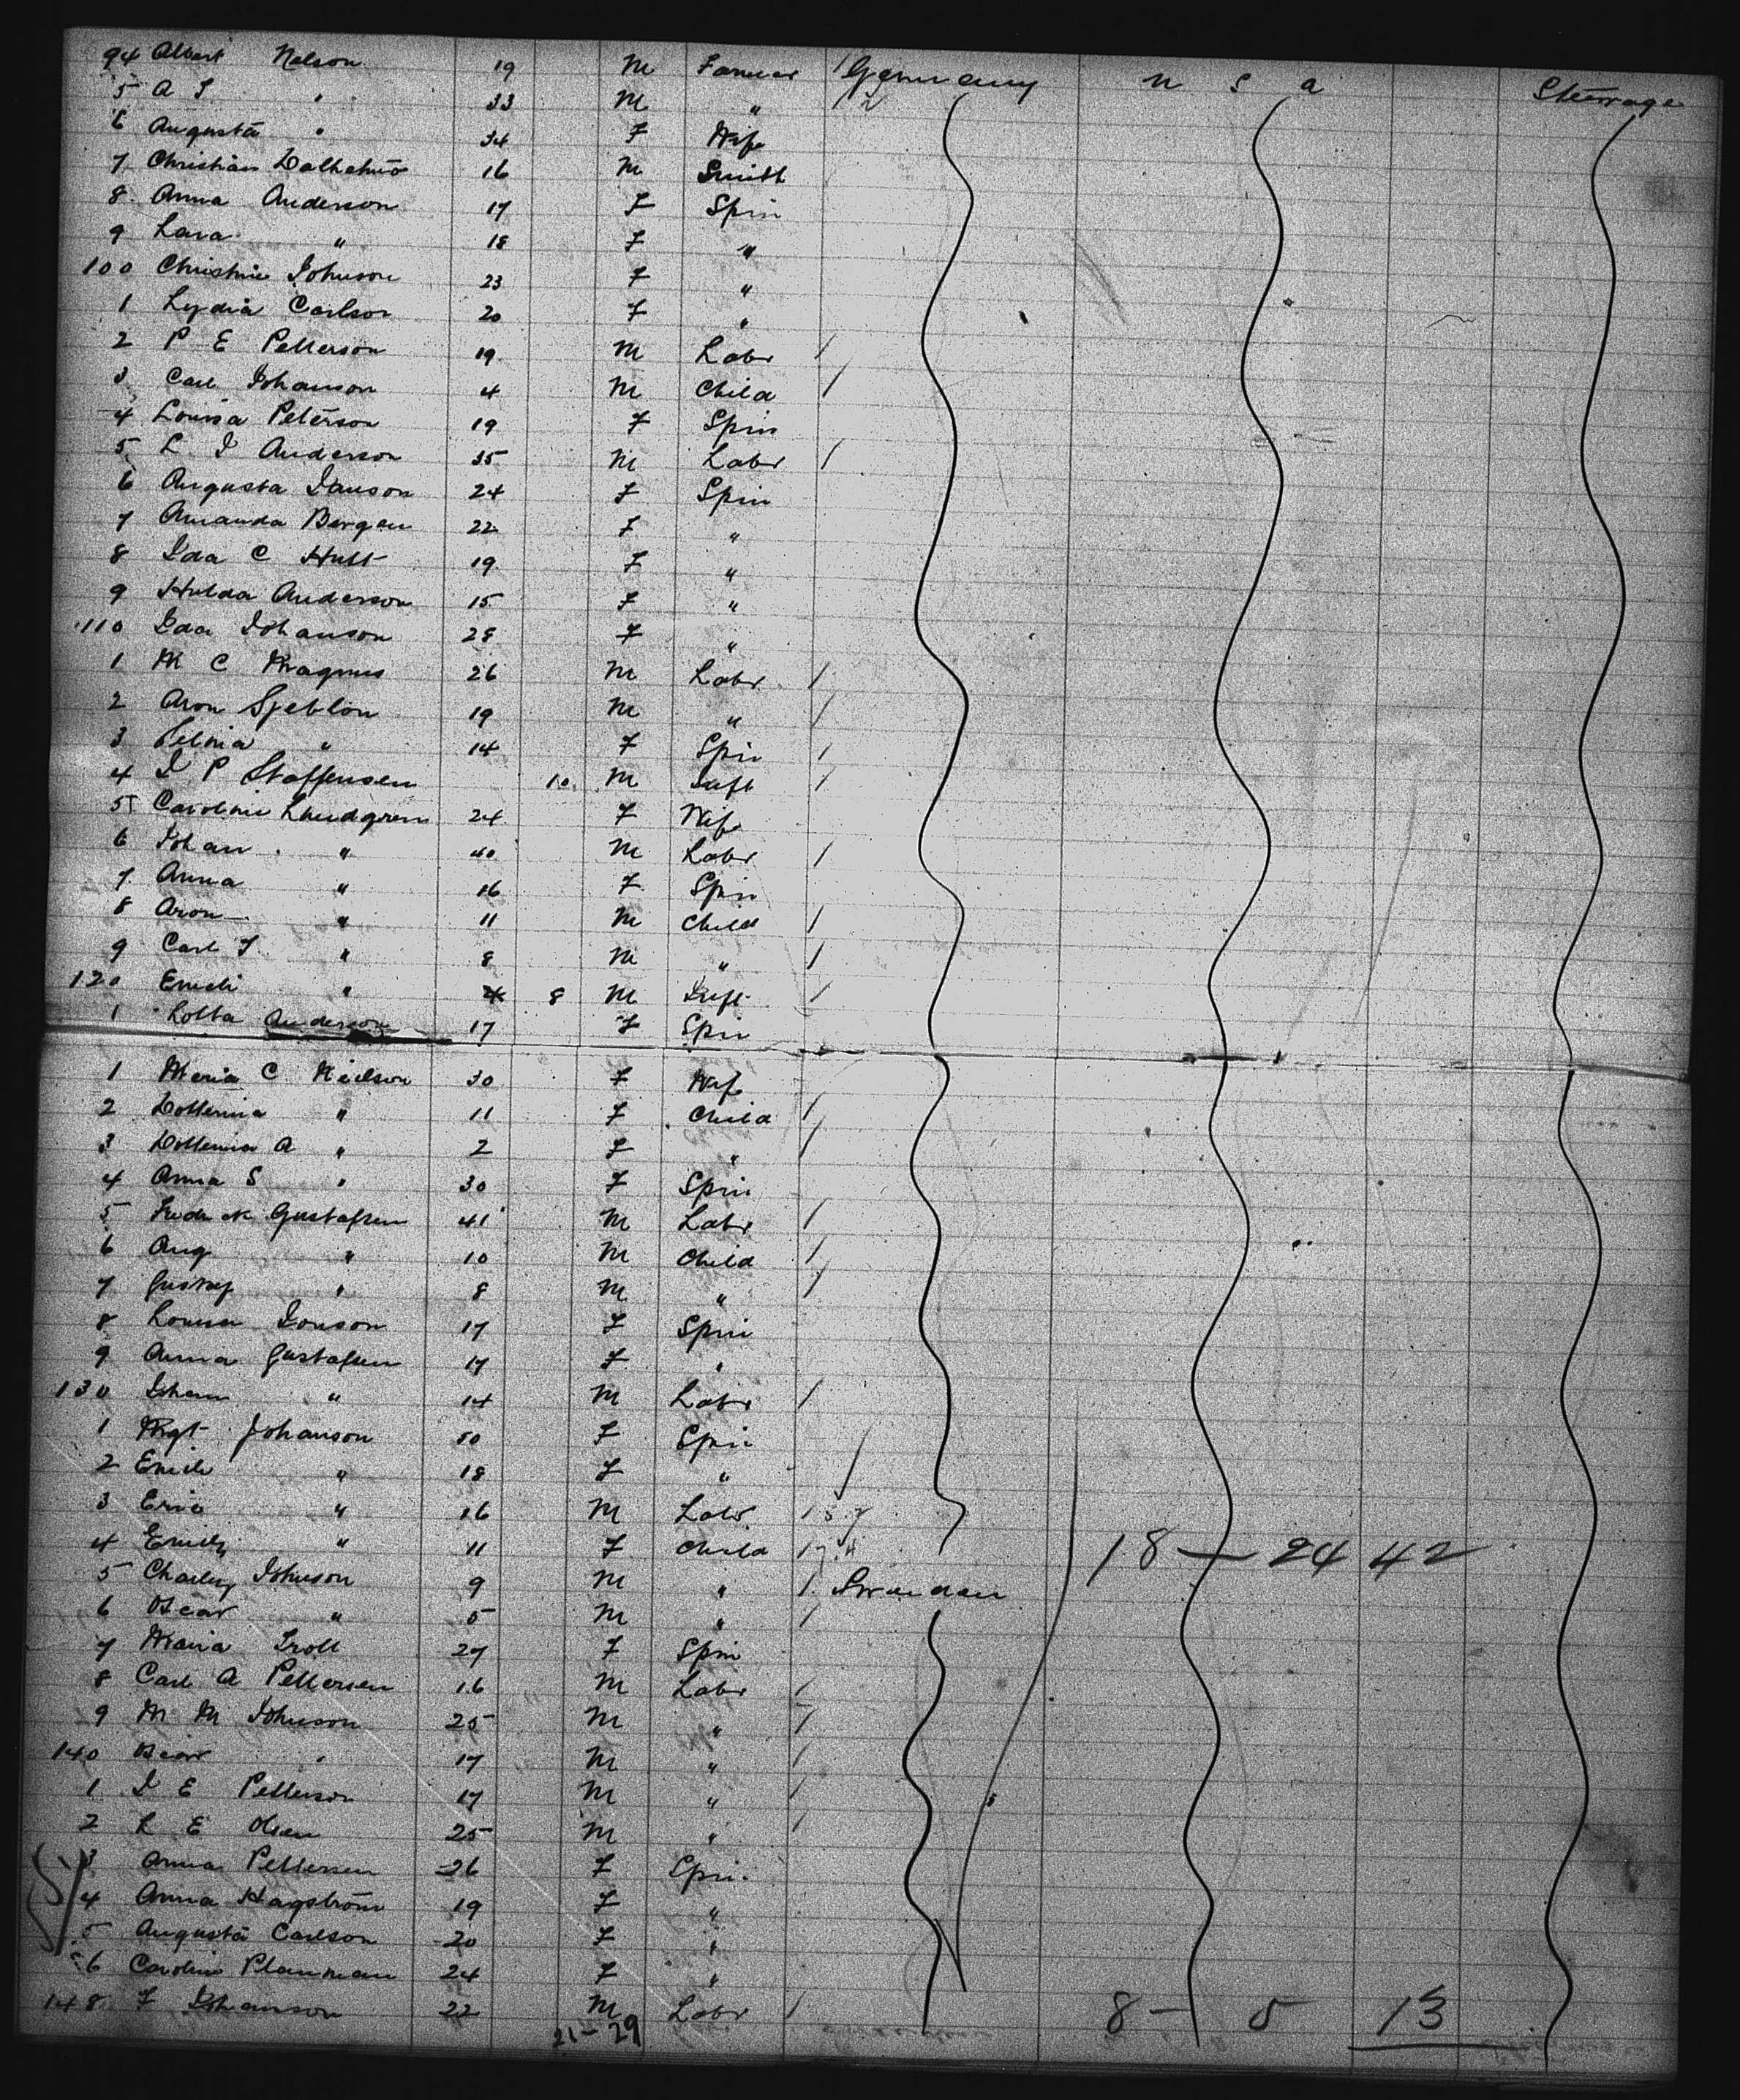 94 Albert Nelson 19 M Farmer / Germany U S A Steerage
5 A " 33 M "
6 Augusta " 34 F Wife
7 Christian 16 M Smith
8 Anna Anderson 17 F Spin
9 " 18 F "
100 Christine Johnson 23 F "
1 Lydia Carlson 20 F "
2 P E Petterson 19 M Labr /
3 Carl Johanson 4 M Child /
4 Louisa Peterson 19 F Spin
5 L J Anderson 35 M Labr /
6 Augusta Janson 24 F Spin
7 Amanda Bergen 22 F "
8 Ida C Hult 19 F "
9 Hulda Anderson 15 F "
110 Ida Johanson 28 F "
1 M C Magnus 26 M Labr /
2 Aron 19 M " /
3 " 14 F Spin /
4 J P Staffensen 10 M Inft /
5 Caroline Lundgren 24 F Wife
6 Johan " 40 M Labr /
7 Anna " 16 F Spin
8 Aron " 11 M Child /
9 Carl F " 8 M " /
120 " 8 M Inft /
1 Lotta Anderson 17 F Spin
1 Maria C Neilson 30 F Wife
2 " 11 F Child /
3 A " 2 F " /
4 Anna S " 30 F Spin
5 Gustafsen 41 M Labr /
6 Aug " 10 M Child /
7 Gustaf " 8 M " /
8 Louisa Jonson 17 F Spin
9 Anna Gustafsen 17 F "
130 Johan " 14 M Labr /
1 Mgt Johanson 50 F Spin
2 " 18 F "
3 Eric " 16 M Labr /
4 Emily " 11 F Child / 18 — 24 42
5 Charley Johnson 9 M " /
6 Oscar " 5 M " /
7 Maria Troll 27 F Spin
8 Carl A Pettersen 16 M Labr /
9 M M Johnson 25 M " /
140 Oscar " 17 M " /
1 J E Petterson 17 M " /
2 L E Olsen 25 M " /
3 Anna Pettersen 26 F Spin
4 Anna Hagström 19 F "
5 Augusta Carlson 20 F "
6 Caroline Planman 24 F "
148 F Johanson 22 M Labr / 8 — 5 13
21 - 29